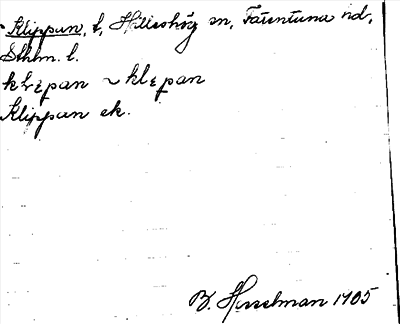 Klippan, t, Hilleshög sn, Färentuna hd,
Sthlm. l.
klɛpan ~ klɛpan
Klippan ek.
B. Hesselman 1905